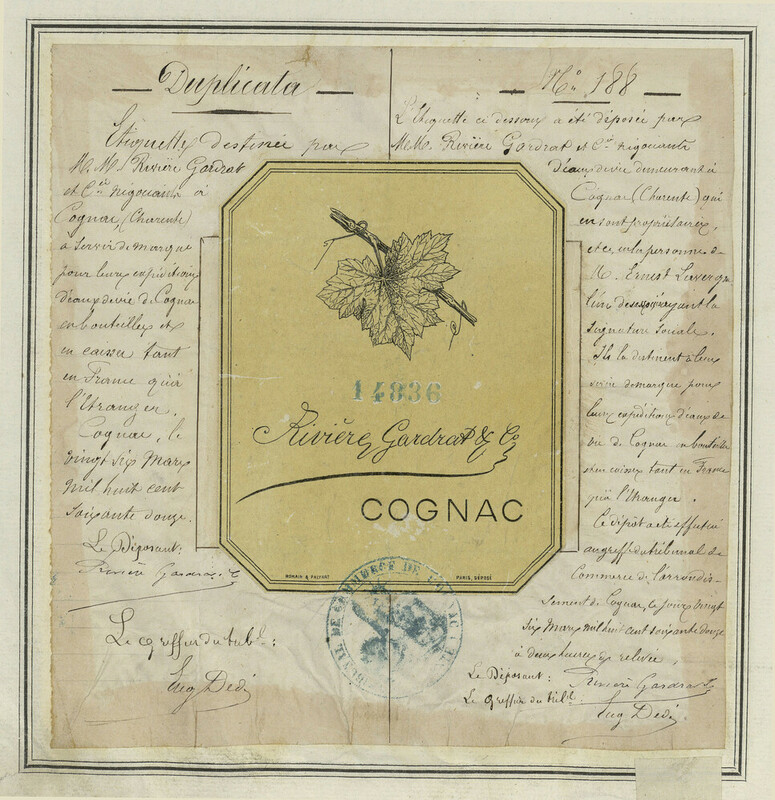 Duplicata
Etiquette destinée par
M.M. Rivière Gardrat
et Cie négociants à
Cognac (Charente)
à servir de marque
pour leurs expéditions
d'eaux de vie de Cognac
en bouteilles et
en caisses tant
en France qu'à
l'Etranger.
Cognac, le
vingt six Mars
mil huit cent
soixante douze.
Le Déposant:
Rivière Gardrat & Co
Le Greffier du tribl:
Eug Dedé
No 188
L'étiquette ci dessous a été déposée par
M.M. Rivière Gardrat et Cie négociants
d'eaux de vie demeurant à
Cognac (Charente) qui
en sont propriétaires,
et ce, en la personne de
M. Ernest
l'un d'eux ayant la
signature sociale.
Ils la destinent à leur
servir de marque pour
leurs expéditions d'eaux de
vie de Cognac en bouteilles
et en caisses tant en France
qu'à l'Etranger.
Ce dépôt a été effectué
au greffe du tribunal de
Commerce de l'arrondis-
sement de Cognac, ce jour vingt
six Mars mil huit cent soixante douze
à deux heures de relevée,
Le Déposant:
Rivière Gardrat & Co
Le Greffier du tribl:
Eug Dedé
14836
Rivière, Gardrat & Co
COGNAC
ROMAIN & PALYART
PARIS, DÉPOSÉ
DE COMMERCE DE COGNAC